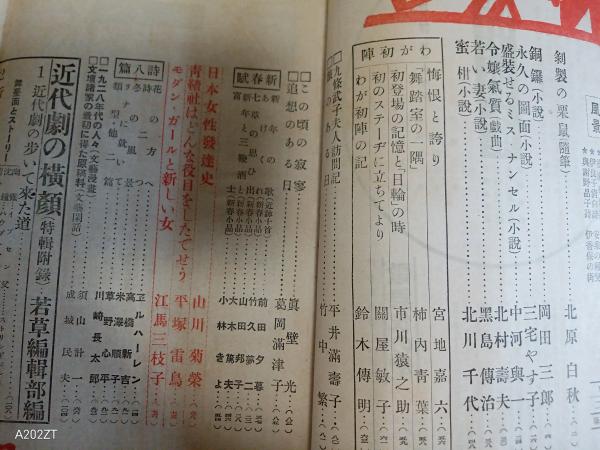 剝製の栗鼠(隨筆)
北原白秋
銅鑼(小説)
岡田三郎
永久の圖面(小説)
三宅やす子
盛裝せるミス ナンセル(小説)
中河與一
令孃氣質(戯曲)
北村壽夫
若い妻(小説)
黑島傳治
蜜柑(小説)
北川千代
わが初陣
悔恨と誇り
宮地嘉六
「舞踏室の隅」
柿内青葉
初登場の記憶と「目輪」の時
市川猿之助
初のステーヂに立ちてより
關屋敏子
わが初陣の記
鈴木傳明
□九條武子夫人訪問記
平井滿壽子
竹中繁
□この頃の寂寥
眞壁光
□追想のある日
葛岡滿津子
新春賦
前田夕暮
竹久夢二
山田邦子
大木篤夫
小林きよ
日本女性發達史
山川菊榮
靑鞜社はどんな役目をしたでせう
平塚雷鳥
モダン・ガールと新しい女
江馬三枝子
詩八篇
花の二方へ
ヱルハーレン
冬の風景
高橋新吉
米澤順子
類型
草野心平
他二篇
□一九二八年代の人々(文藝漫畫)
川崎長太郎
須山計一
文壇諸家の最初に得た原稿料(文藝閑話)
成城民夫
近代劇の橫顏(特輯附錄)
若草編輯部編
1 近代劇の歩いて來た道
舞臺面とストーリー
A202ZT